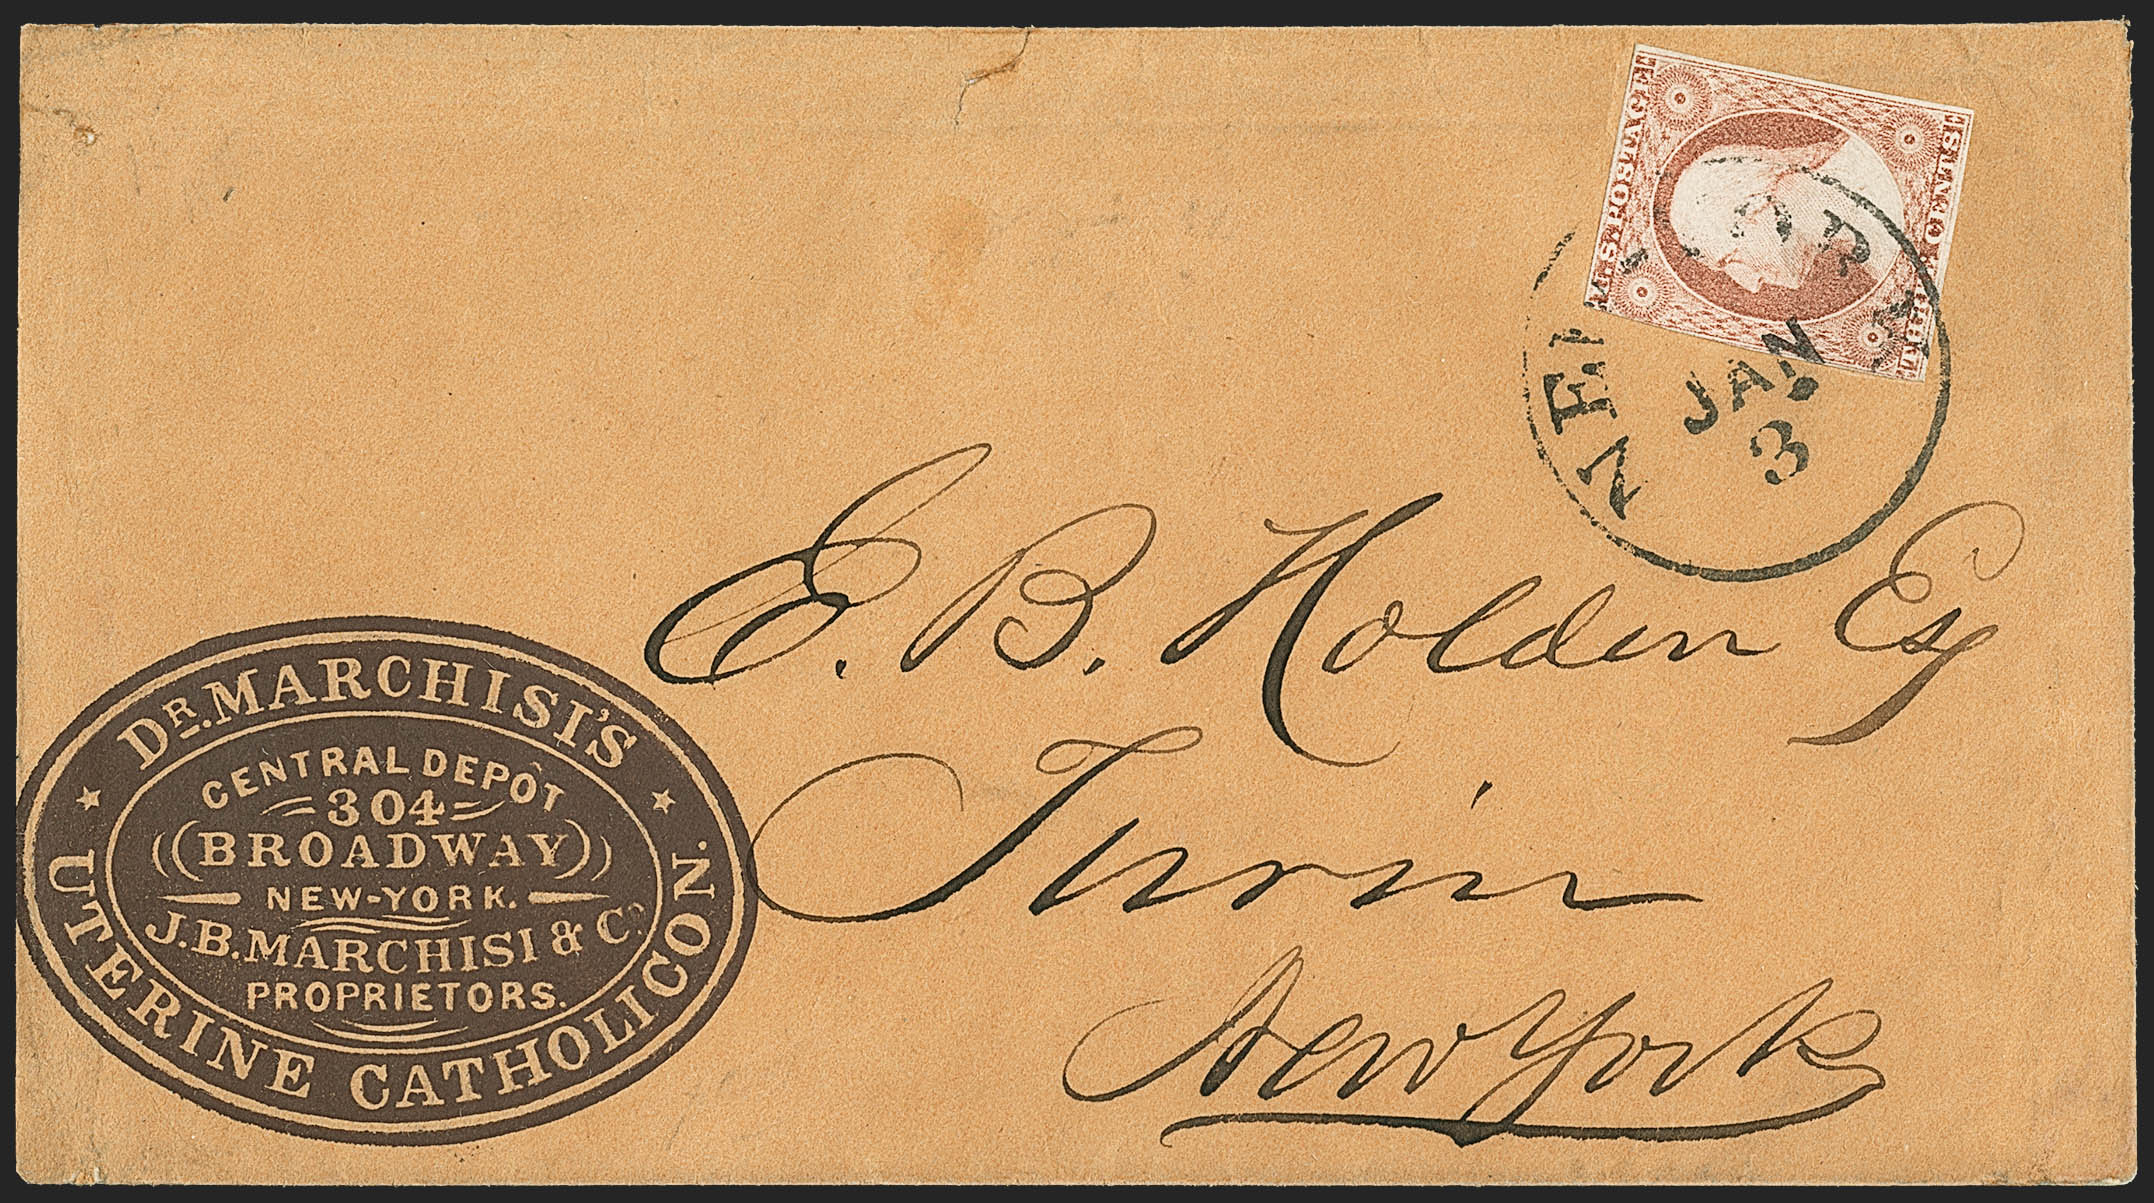 U.S. POSTAGE
THREE CENTS
NEW-YORK
JAN
3
E. B. Holden Esq
Turin
New York
DR. MARCHISI'S
CENTRAL DEPOT
304
BROADWAY
NEW-YORK.
J.B. MARCHISI & CO
PROPRIETORS.
UTERINE CATHOLICON.